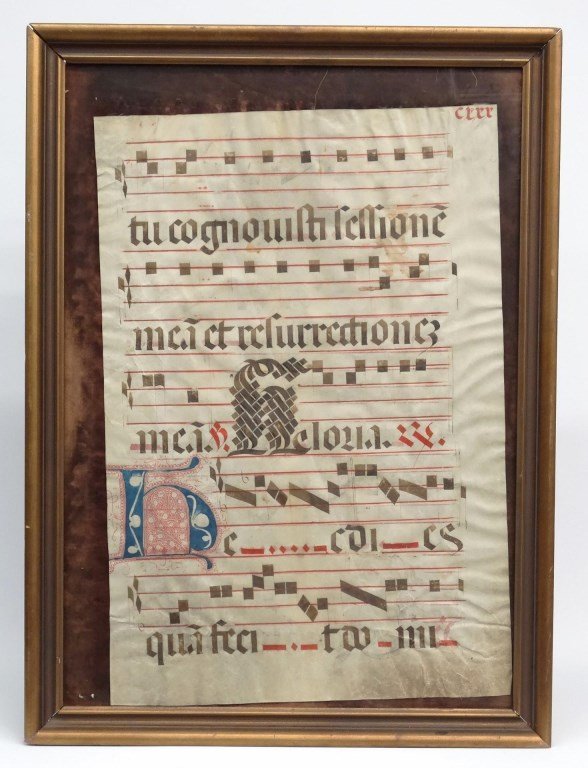 cxxx
tu cognouisti sessionē
meā et resurrectionez
meā. ℣. Gloria. R.
He c di es
quā feci t do mi